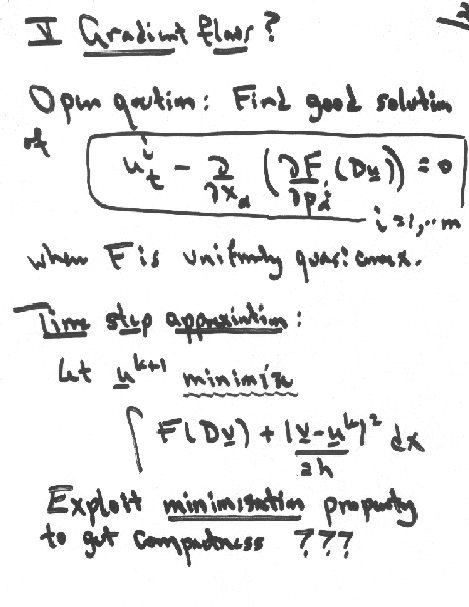 V Gradient flows?
Open question: Find good solution
of
u^i_t - ∂/∂x_α (∂F/∂p^i_α (Du)) = 0
i = 1, ... m
when F is uniformly quasiconvex.
Time step approximation:
Let u^{k+1} minimize
∫ F(Dv) + |v-u^k|^2/2h dx
Exploit minimization property
to get compactness ???